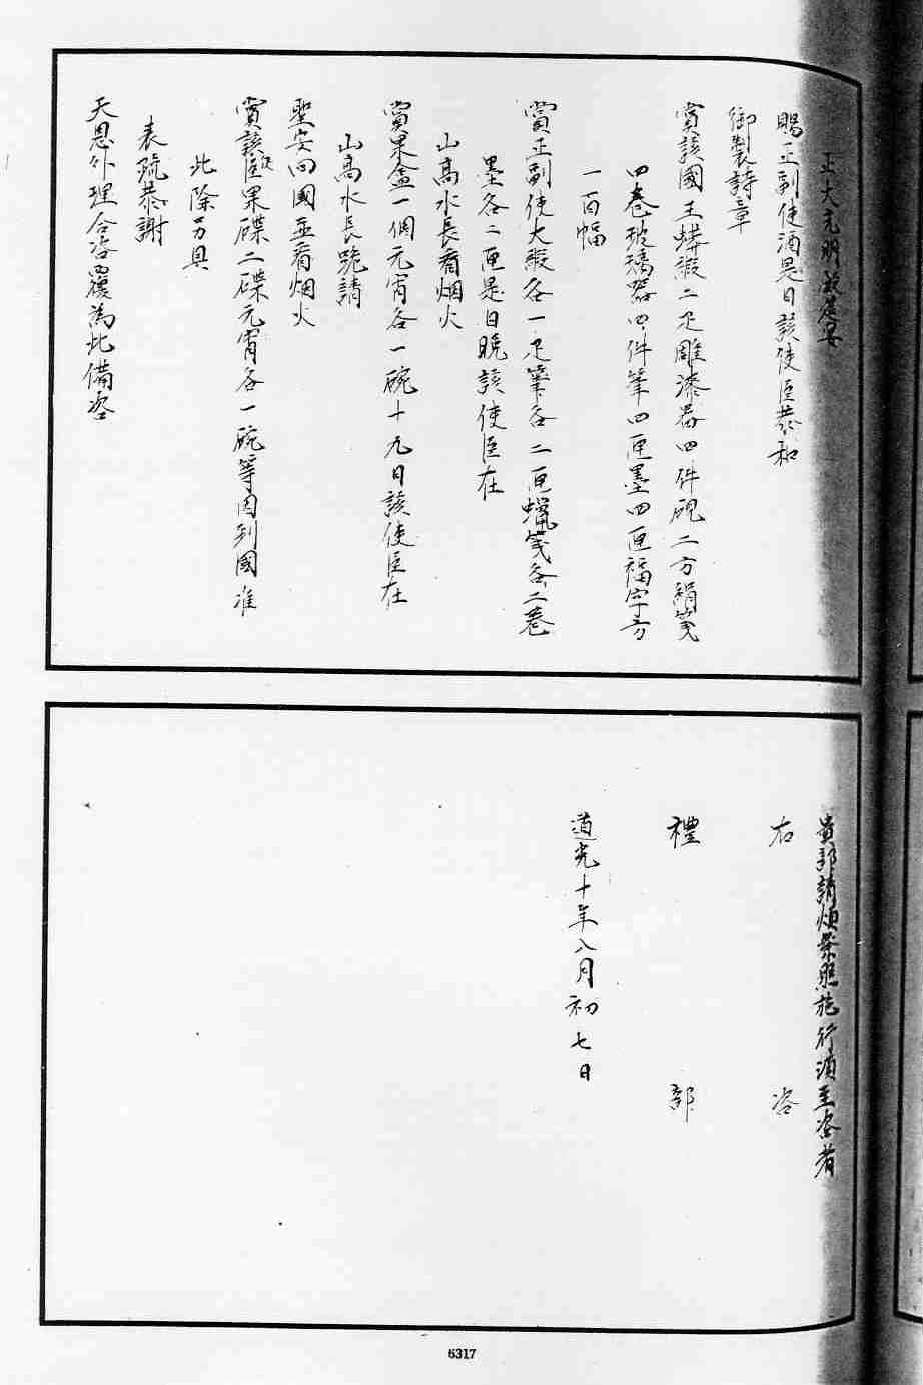 正大光明殿筵宴
賜正副使酒是日該使臣恭和
御製詩章
賞該國王蟒緞二疋雕漆器四件硯二方絹箋
四卷玻璃器四件筆四匣墨四匣福字方
一百幅
賞正副使大緞各一疋筆各二匣蠟箋各二卷
墨各二匣是日晚該使臣在
山高水長看烟火
賞果盒一個元宵各一碗十九日該使臣在
山高水長跪請
聖安回國並看烟火
賞該使臣果碟二碟元宵各一碗等因到國准
此除另具
表疏恭謝
天恩外理合咨覆為此備咨
貴部請煩察照施行須至咨者
右 咨
禮 部
道光十年八月初七日
6317